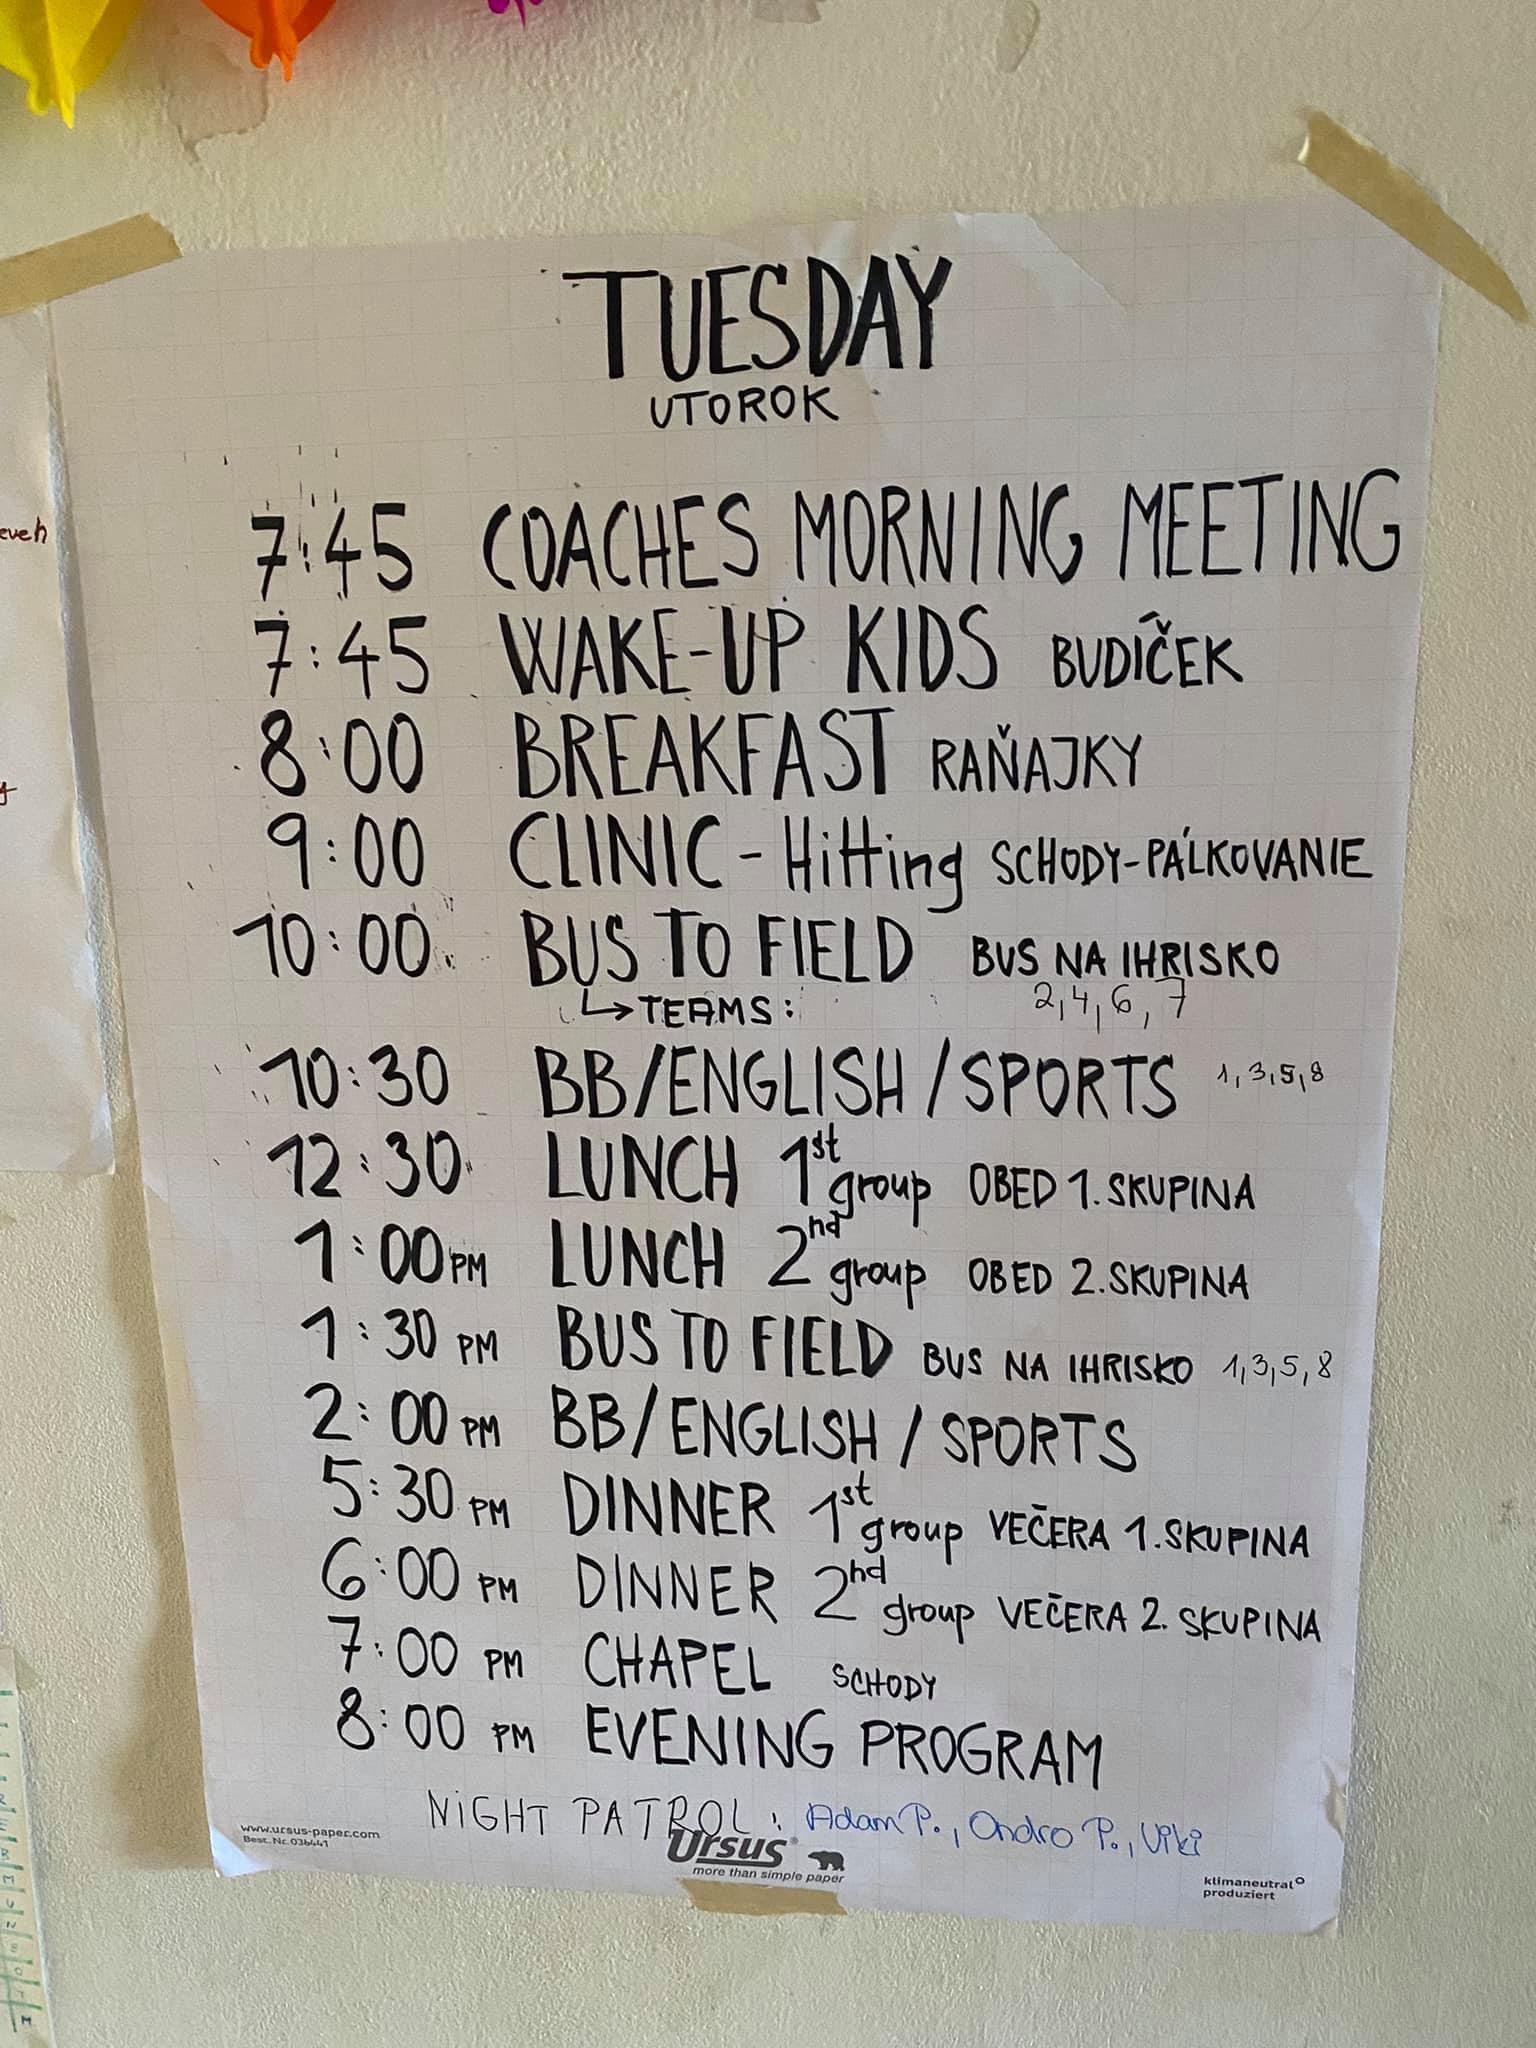 TUESDAY
UTOROK
7:45 COACHES MORNING MEETING
7:45 WAKE-UP KIDS BUDÍČEK
8:00 BREAKFAST RAŇAJKY
9:00 CLINIC - Hitting SCHODY-PÁLKOVANIE
10:00 BUS TO FIELD BUS NA IHRISKO
↳ TEAMS: 2,4,6,7
10:30 BB/ENGLISH/SPORTS 1,3,5,8
12:30 LUNCH 1st group OBED 1. SKUPINA
1:00 PM LUNCH 2nd group OBED 2. SKUPINA
1:30 PM BUS TO FIELD BUS NA IHRISKO 1,3,5,8
2:00 PM BB/ENGLISH/SPORTS
5:30 PM DINNER 1st group VEČERA 1. SKUPINA
6:00 PM DINNER 2nd group VEČERA 2. SKUPINA
7:00 PM CHAPEL SCHODY
8:00 PM EVENING PROGRAM
NIGHT PATROL: Adam P., Ondro P., Viki
www.ursus-paper.com
Best. Nr. 036441
Ursus
more than simple paper
klimaneutral
produziert